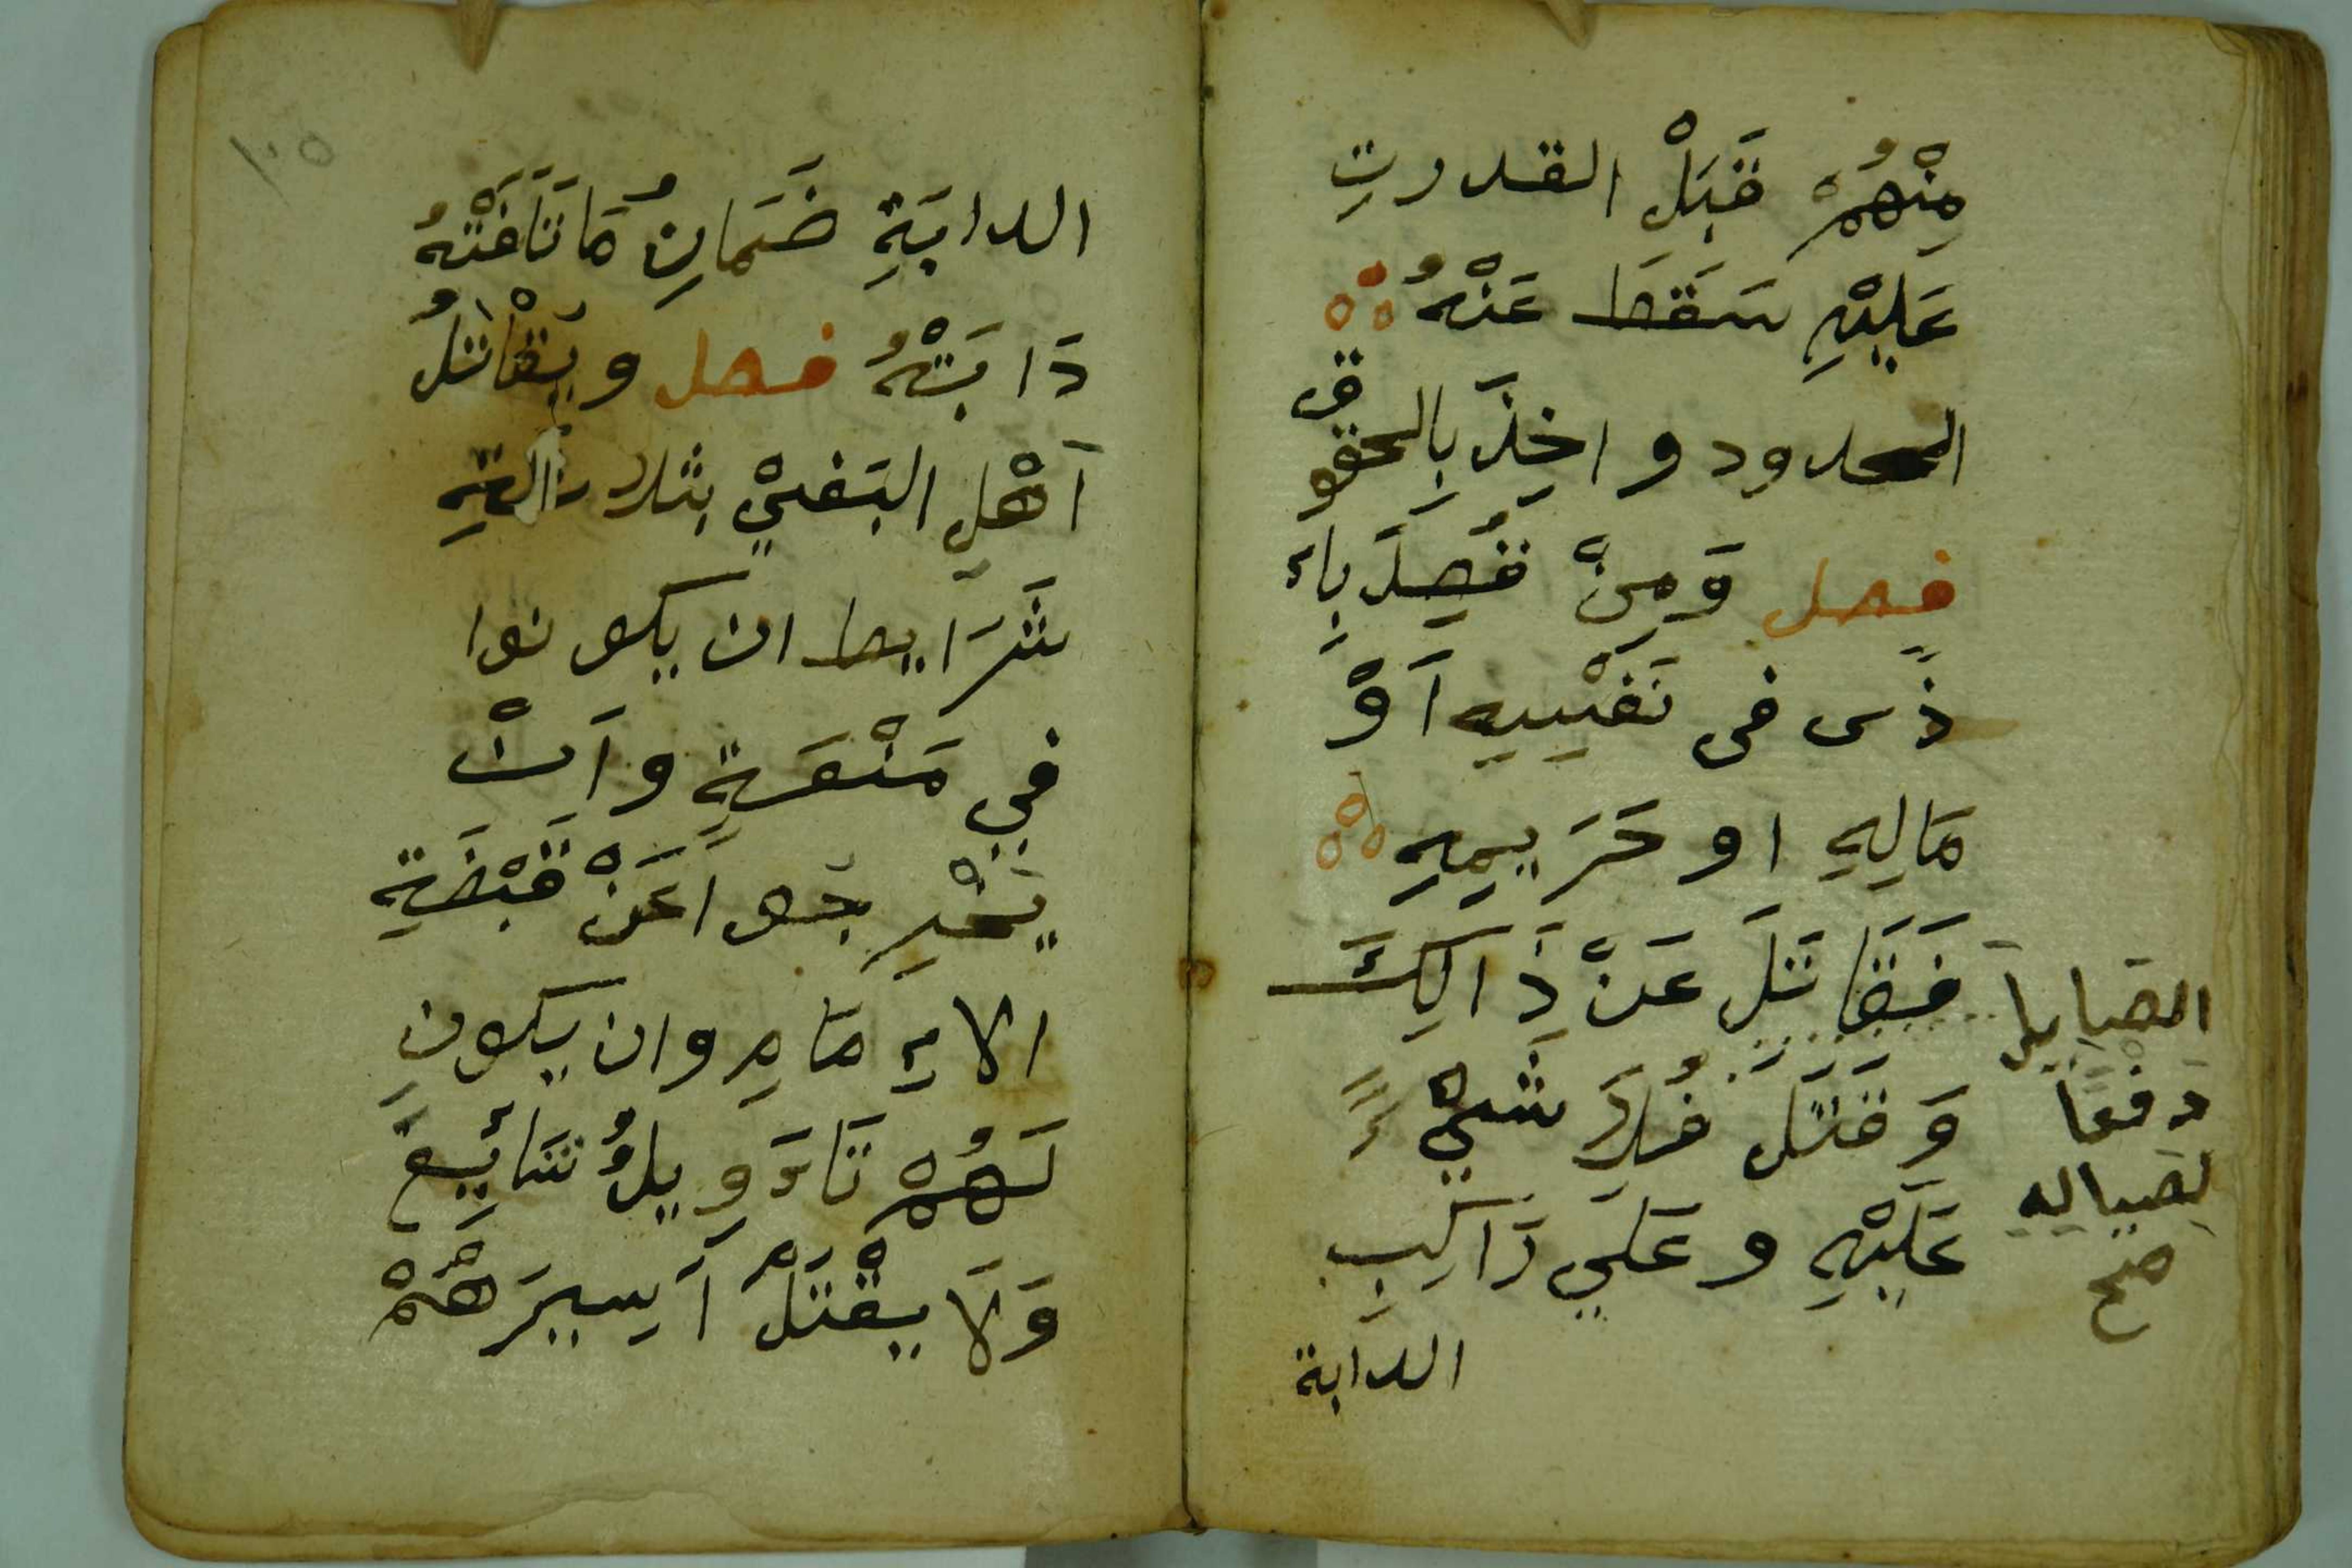 مِنْهُمْ قَبْلِ القدرتِ
عَلَيْهِ سَقَطَ عَنْهُ
الحدود و اخِذَ بِالحقوق
فصل وَمِنْ قُصِدَ بِاءَ
ذَى فى نَفْيِيهِ اَوْ
مَالِهِ او حَرَيمِهِ
فَقَاتَلَ عَنْ ذَالِكَ
وَ قَتَلَ فُلاَ شَيْءٍ
عَلَيْهِ و عَلَي رَاكِبِ
الدابة
الصَايِلَ
دَفعًا
لصياله
صح
١٠٥
الدابَةِ ضَمَانِ مَا تَلَفَتْهُ
دَابَتْهُ فصل و يُقَاتَلُ
اَهْلِ البَغيْ بثلاثةِ
شَرَايط ان يكونوا
فِي مَنْعَةٍ و اَنْ
يَخْرِجُوا عَنْ قَبْضَةِ
الاءِمَامِ وان يكونِ
لَهُمْ تَاءَوِيلُ سَائِغ
وَلاَ يقْتَلُ اَسِيرَهُمْ